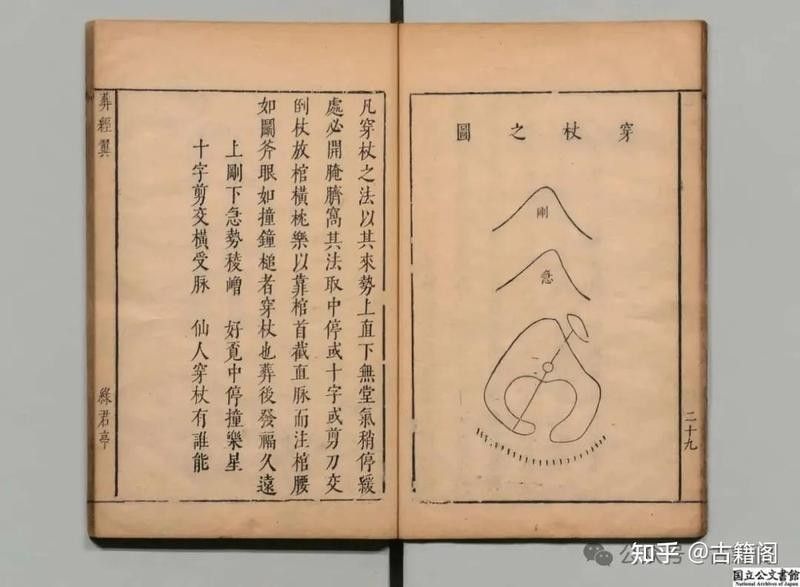 穿杖之圖
剛
急
二十九
凡穿杖之法以其來勢上直下無堂氣稍停緩
處必開腌臍窩其法取中停或十字或剪刀交
倒杖放棺橫枕樂以靠棺首截直脉而注棺腰
如鬭斧眼如撞鐘槌者穿杖也葬後發福久遠
上剛下急勢稜嶒 好覔中停撞樂星
十字剪交橫受脉 仙人穿杖有誰能
葬經翼
綠君亭
知乎 @古籍阁
国立公文書館
National Archives of Japan